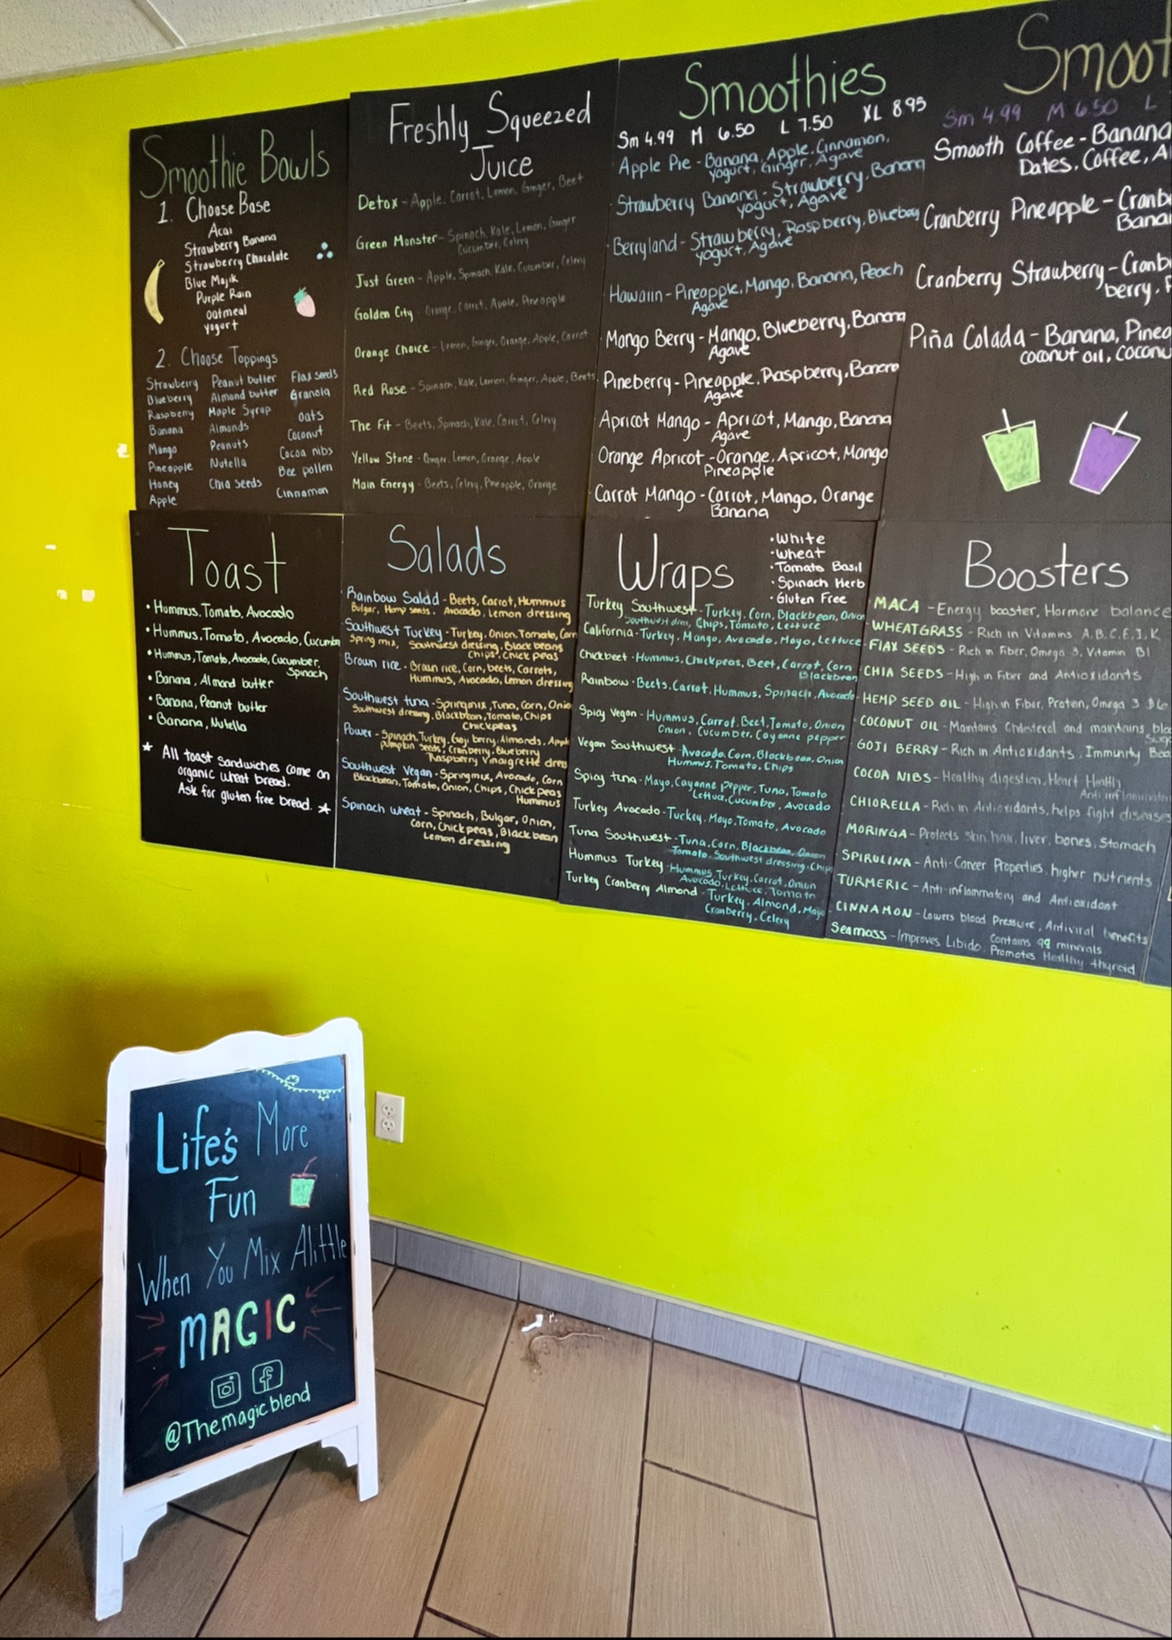 Smoothie Bowls
1. Choose Base
Acai
Strawberry Banana
Strawberry Chocolate
Blue Majik
Purple Rain
Oatmeal
Yogurt
2. Choose Toppings
Strawberry
Blueberry
Raspberry
Banana
Mango
Pineapple
Honey
Apple
Peanut butter
Almond butter
Maple Syrup
Almonds
Peanuts
Nutella
Chia seeds
Flax seeds
Granola
oats
Coconut
Cocoa nibs
Bee pollen
Cinnamon
Freshly Squeezed
Juice
Detox - Apple, Carrot, Lemon, Ginger, Beet
Green Monster - Spinach, Kale, Lemon, Ginger
Cucumber, Celery
Just Green - Apple, Spinach, Kale, Cucumber, Celery
Golden City - Orange, Carrot, Apple, Pineapple
Orange Choice - Lemon, Ginger, Orange, Apple, Carrot
Red Rose - Spinach, Kale, Lemon, Ginger, Apple, Beets
The Fit - Beets, Spinach, Kale, Carrot, Celery
Yellow Stone - Ginger, Lemon, Orange, Apple
Main Energy - Beets, Celery, Pineapple, Orange
Smoothies
Sm 4.99 M 6.50 L 7.50 XL 8.95
Apple Pie - Banana, Apple, Cinnamon,
yogurt, Ginger, Agave
Strawberry Banana - Strawberry, Banana
yogurt, Agave
Berryland - Strawberry, Raspberry, Blueberry
yogurt, Agave
Hawaiin - Pineapple, Mango, Banana, Peach
Agave
Mango Berry - Mango, Blueberry, Banana
Agave
Pineberry - Pineapple, Raspberry, Banana
Agave
Apricot Mango - Apricot, Mango, Banana
Agave
Orange Apricot - Orange, Apricot, Mango
Pineapple
Carrot Mango - Carrot, Mango, Orange
Banana
Smoot
Sm 4.99 M 6.50 L
Smooth Coffee - Banana
Dates, Coffee, A
Cranberry Pineapple - Cranb
Bana
Cranberry Strawberry - Cranb
berry,
Piña Colada - Banana, Pinea
coconut oil, coconu
Toast
• Hummus, Tomato, Avocado
• Hummus, Tomato, Avocado, Cucumber
• Hummus, Tomato, Avocado, Cucumber,
Spinach
• Banana, Almond butter
• Banana, Peanut butter
• Banana, Nutella
* All toast sandwiches come on
organic wheat bread.
Ask for gluten free bread. *
Salads
Rainbow Salad - Beets, Carrot, Hummus
Bulgar, Hemp seeds, Avocado, Lemon dressing
Southwest Turkey - Turkey, Onion, Tomato, Corn
Spring mix, Southwest dressing, Black beans
Chips, Chick peas
Brown rice - Brown rice, Corn, beets, Carrots,
Hummus, Avocado, Lemon dressing
Southwest tuna - Springmix, Tuna, Corn, Onion
Southwest dressing, Blackbean, Tomato, Chips
Chickpeas
Power - Spinach, Turkey, Goji berry, Almonds, Apple
Pumpkin seeds, Cranberry, Blueberry
Raspberry Vinaigrette dress
Southwest Vegan - Springmix, Avocado, Corn
Blackbean, Tomato, Onion, Chips, Chick peas
Hummus
Spinach wheat - Spinach, Bulgar, Onion,
Corn, Chick peas, Black bean
Lemon dressing
Wraps
• White
• Wheat
• Tomato Basil
• Spinach Herb
• Gluten Free
Turkey Southwest - Turkey, Corn, Blackbean, Onion
Southwest dress, Chips, Tomato, Lettuce
California - Turkey, Mango, Avocado, Mayo, Lettuce
Chickbeet - Hummus, Chickpeas, Beet, Carrot, Corn
Blackbean
Rainbow - Beets, Carrot, Hummus, Spinach, Avocado
Spicy Vegan - Hummus, Carrot, Beet, Tomato, Onion
Onion, Cucumber, Cayanne pepper
Vegan Southwest - Avocado, Corn, Blackbean, Onion
Hummus, Tomato, Chips
Spicy tuna - Mayo, Cayanne pepper, Tuna, Tomato
Lettuce, Cucumber, Avocado
Turkey Avocado - Turkey, Mayo, Tomato, Avocado
Tuna Southwest - Tuna, Corn, Blackbean, Onion
Tomato, Southwest dressing, Chips
Hummus Turkey - Hummus, Turkey, Carrot, Onion
Avocado, Lettuce, Tomato
Turkey Cranberry Almond - Turkey, Almond, Mayo
Cranberry, Celery
Boosters
MACA - Energy booster, Hormone balance
WHEATGRASS - Rich in Vitamins A, B, C, E, I, K
FLAX SEEDS - Rich in Fiber, Omega 3, Vitamin B1
CHIA SEEDS - High in Fiber and Antioxidants
HEMP SEED OIL - High in Fiber, Protein, Omega 3 & 6
COCONUT OIL - Maintans Cholesterol and maintains blo
GOJI BERRY - Rich in Antioxidants, Immunity Boo
COCOA NIBS - Healthy digestion, Heart Health
Anti inflammator
CHLORELLA - Rich in Antioxidants, helps fight diseases
MORINGA - Protects skin, hair, liver, bones, Stomach
SPIRULINA - Anti-Cancer Properties, higher nutrients
TURMERIC - Anti-inflammatory and Antioxidant
CINNAMON - Lowers blood Pressure, Antiviral benefits
Seamoss - Improves Libido, Contains 99 minerals
Promotes Healthy thyroid
Life's More
Fun
When You Mix Alittle
MAGIC
@Themagicblend